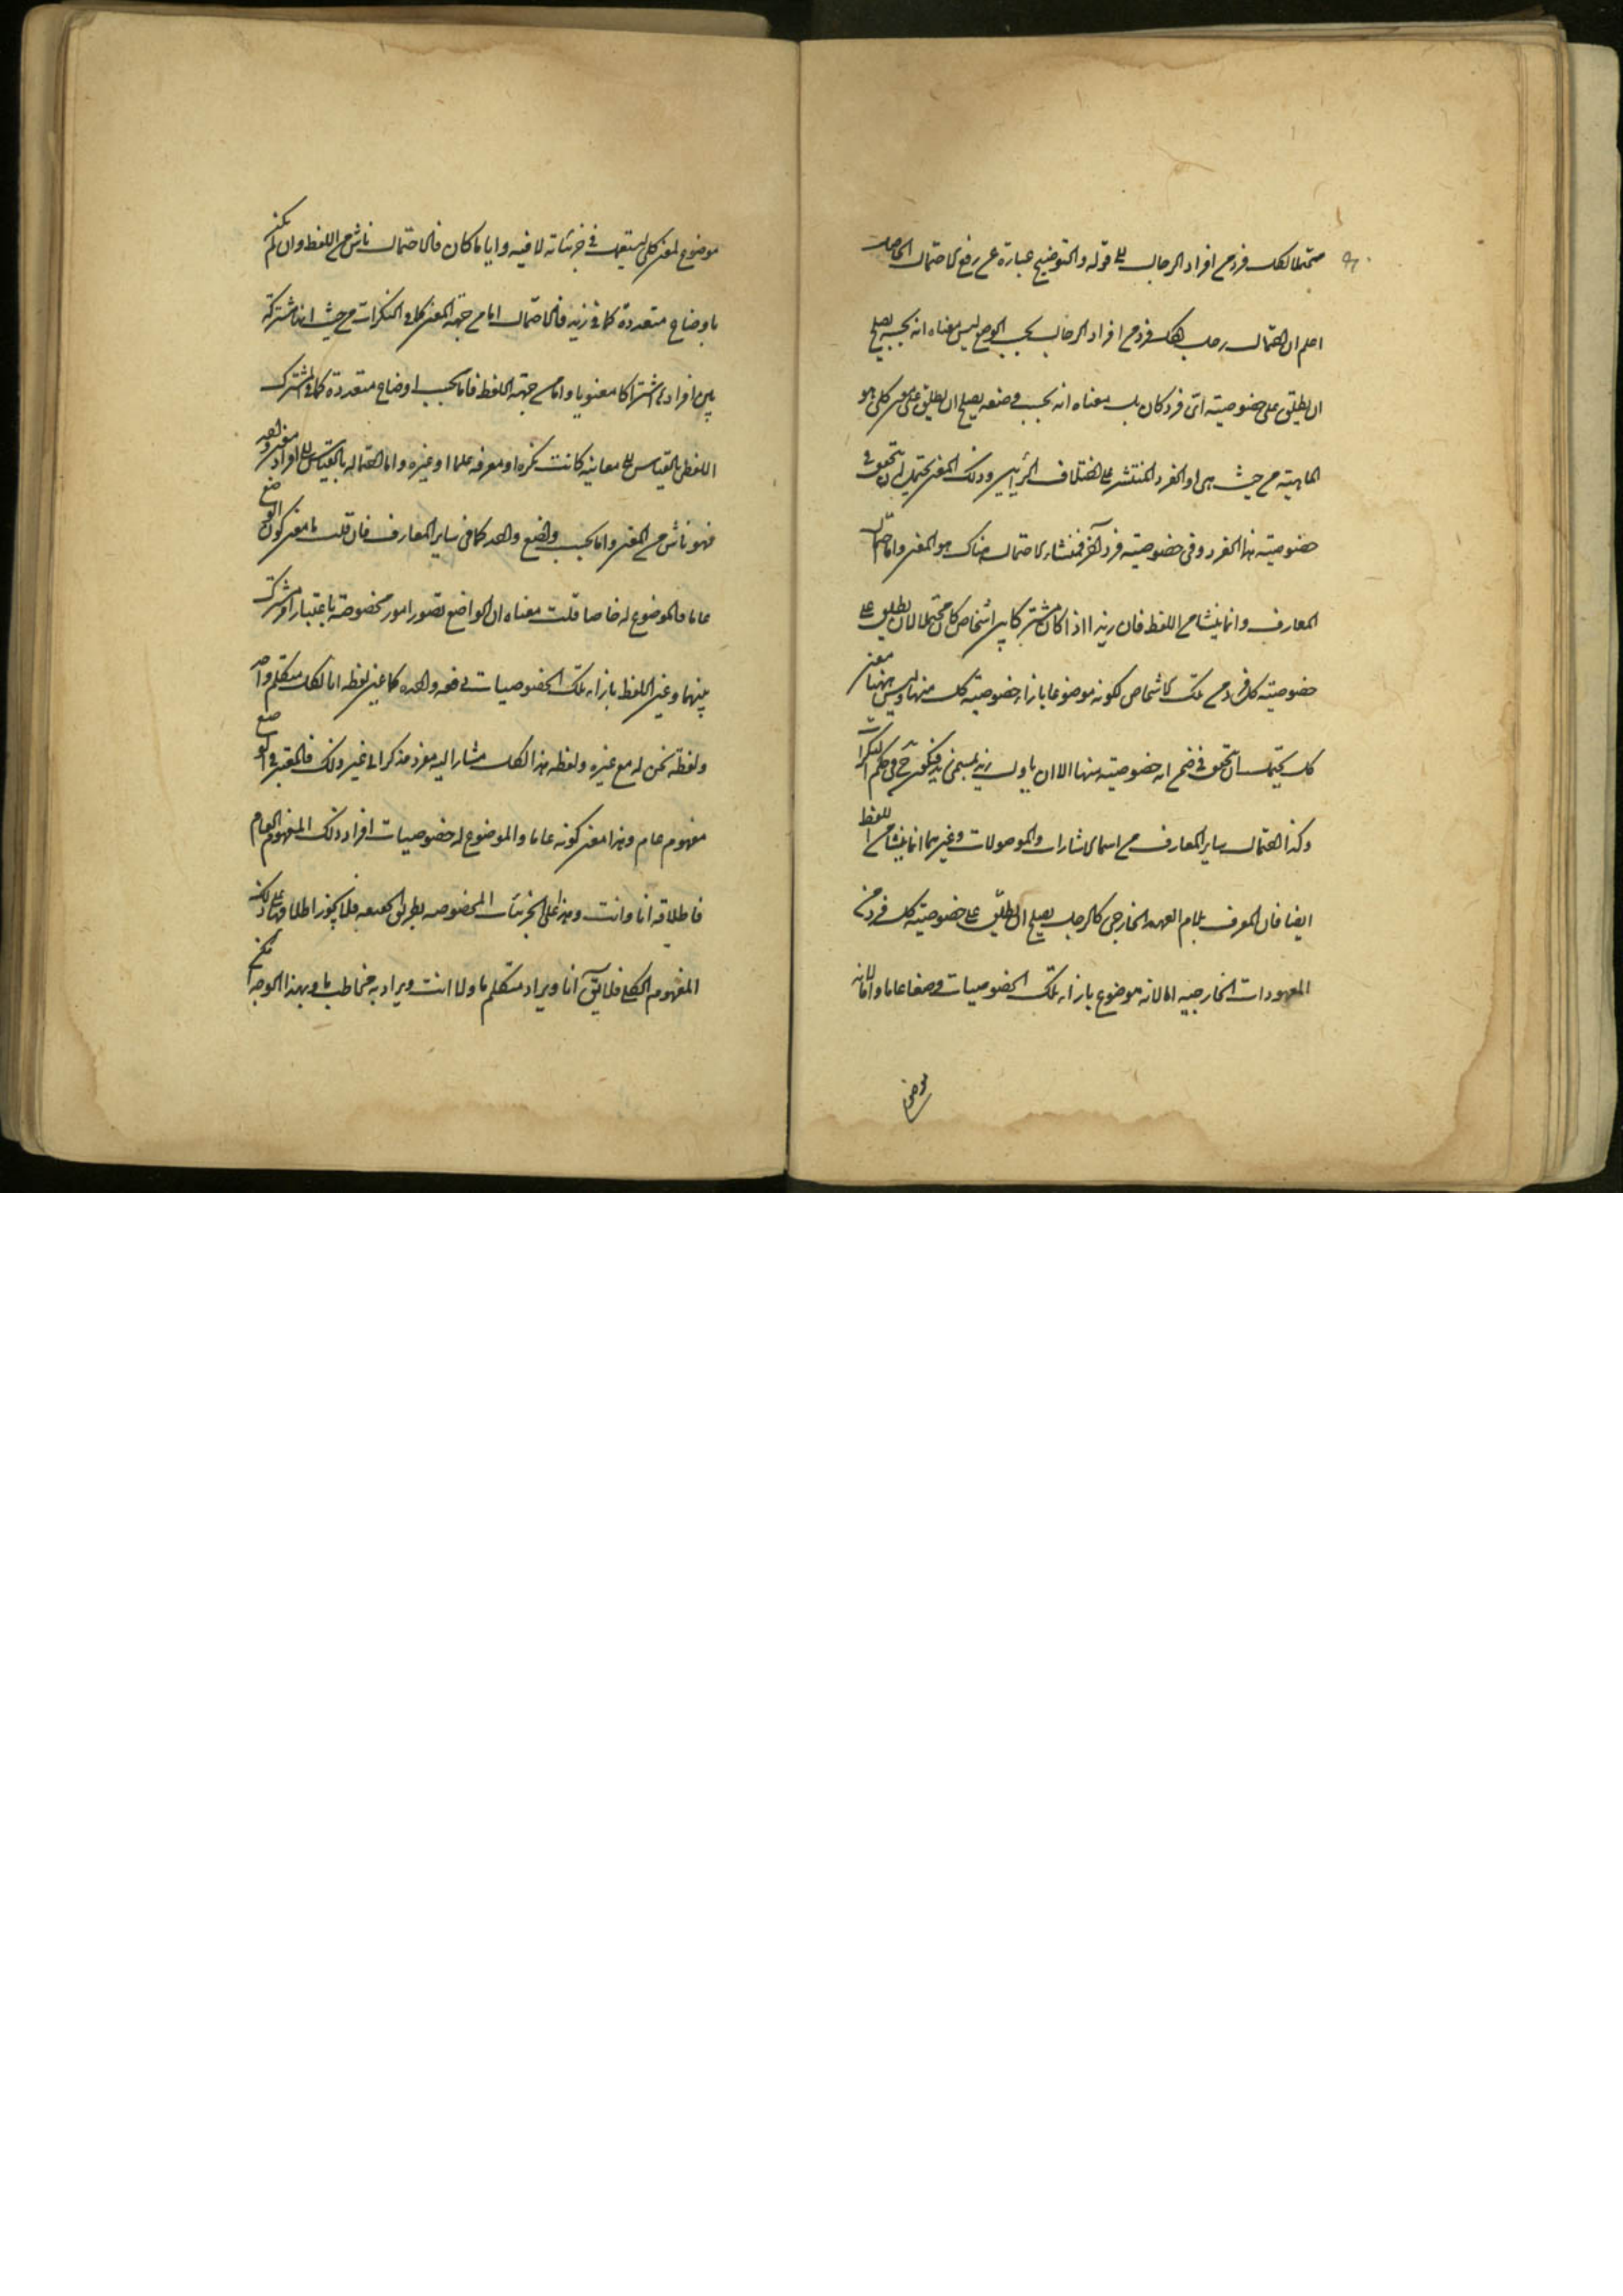 محتملا لكل فرد من افراد الرجال الى قوله والتوضيح عبارة عن رفع الاحتمال الحاصل
اعلم ان احتمال رجل لكل فرد من افراد الرجال بحسب الوضع ليس معناه انه بحسبه يصلح
ان يطلق على خصوصيته اى فرد كان بل معناه انه بحسب وضعه يصلح ان يطلق على معنى كلى هو
الماهية من حيث هى او الفرد المنتشر على اختلاف الرأيين وذلك المعنى يحتمل ان يتحقق فى
خصوصيته هذا الفرد وفى خصوصيته فرد آخر فمنشاء الاحتمال هناك هو المعنى واما احتمال
المعارف فانما ينشا من اللفظ فان زيدا اذا كان مشتركا بين اشخاص كان محتملا لان يطلق على
خصوصيته كل فرد من تلك الاشخاص لكونه موضوعا بازاء خصوصيته كل منها وليس هنا معنى
كلى يحتمل ان يتحقق فى ضمن اية خصوصيته منها الا ان ياول زيد بمسمى زيد فيكون ح فى حكم النكرات
وكذا احتمال ساير المعارف من اسماء الاشارات والموصولات وغيرهما انما ينشا من اللفظ
ايضا فان المعرف بلام العهد الخارجى كالرجل يصلح ان يطلق على خصوصيته كل فرد من
المعهودات الخارجيه اما لانه موضوع بازاء تلك الخصوصيات وضعا عاما واما لانه
موضوع
موضوع لمعنى كلى ليستعمل فى جزئياته لا فيه وايا ما كان فالاحتمال ناش من اللفظ وان لم يكن
باوضاع متعددة كما فى زيد فالاحتمال اما من جهة المعنى كما فى النكرات من حيث انها مشتركة
بين افرادها اشتراكا معنويا واما من جهة اللفظ فاما بحسب اوضاع متعددة كما فى المشترك
اللفظى بالقياس الى معانيه كانت نكرة او معرفه علما او غيره واما احتماله بالقياس الى افراد معنى واحد
فهو ناش من المعنى واما بحسب وضع واحد كما فى ساير المعارف فان قلت ما معنى كون الوضع
عاما والموضوع له خاصا قلت معناه ان الواضع تصور امور مخصوصة باعتبار امر مشترك
بينهما وعين اللفظ بازاء تلك الخصوصيات دفعه واحده كما عين لفظه انا لكل متكلم واحد
ولفظة نحن له مع غيره ولفظه هذا لكل مشار اليه مفرد مذكر الى غير ذلك فالمعتبر فى الوضع
مفهوم عام وهذا معنى كونه عاما والموضوع له خصوصيات افراد ذلك المفهوم العام
فاطلاقه انا وانت وهذا على الجزئيات المخصوصه بطريق الحقيقه فلا يجوز اطلاقها على ذلك
المفهوم الكلى فلا يق انا ويراد متكلم ما ولا انت ويراد به مخاطب ما وبهذا الوجه